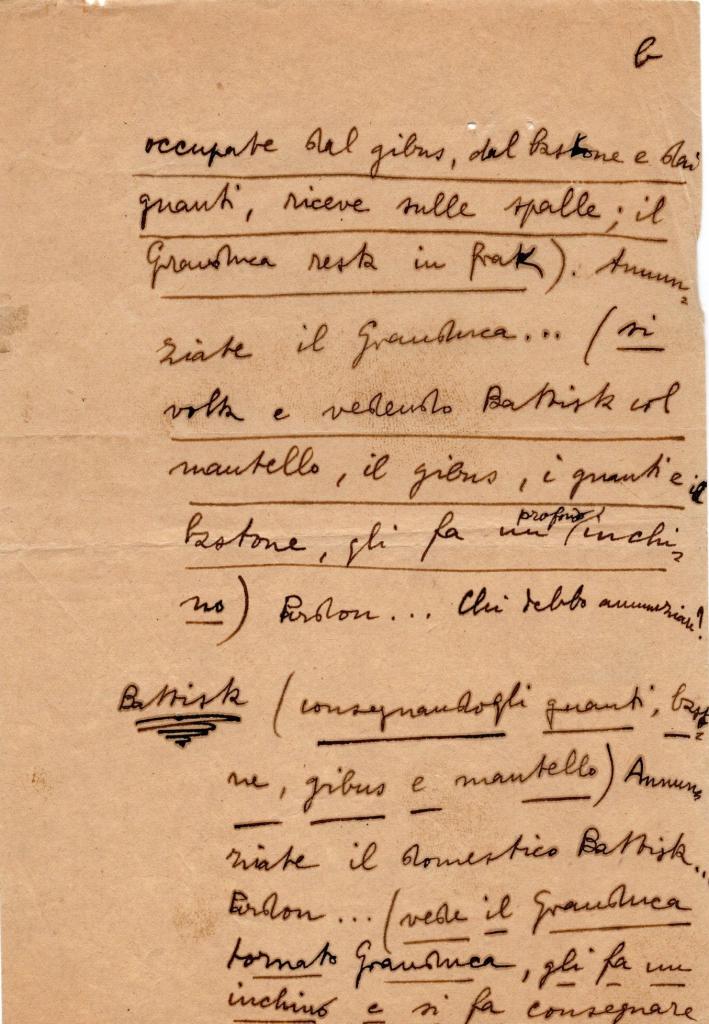 6
occupate dal gibus, dal bastone e dai
guanti, riceve sulle spalle; il
Granduca resta in frak). Annun=
ziate il Granduca... (si
volta e vedendo Battista col
mantello, il gibus, i guanti e il
bastone, gli fa un profondo inchi=
no) Pardon... Chi debbo annunziare?
Battista (consegnandogli guanti, basto=
ne, gibus e mantello) Annun
ziate il domestico Battista...
Pardon... (vede il Granduca
tornato Granduca, gli fa un
inchino e si fa consegnare